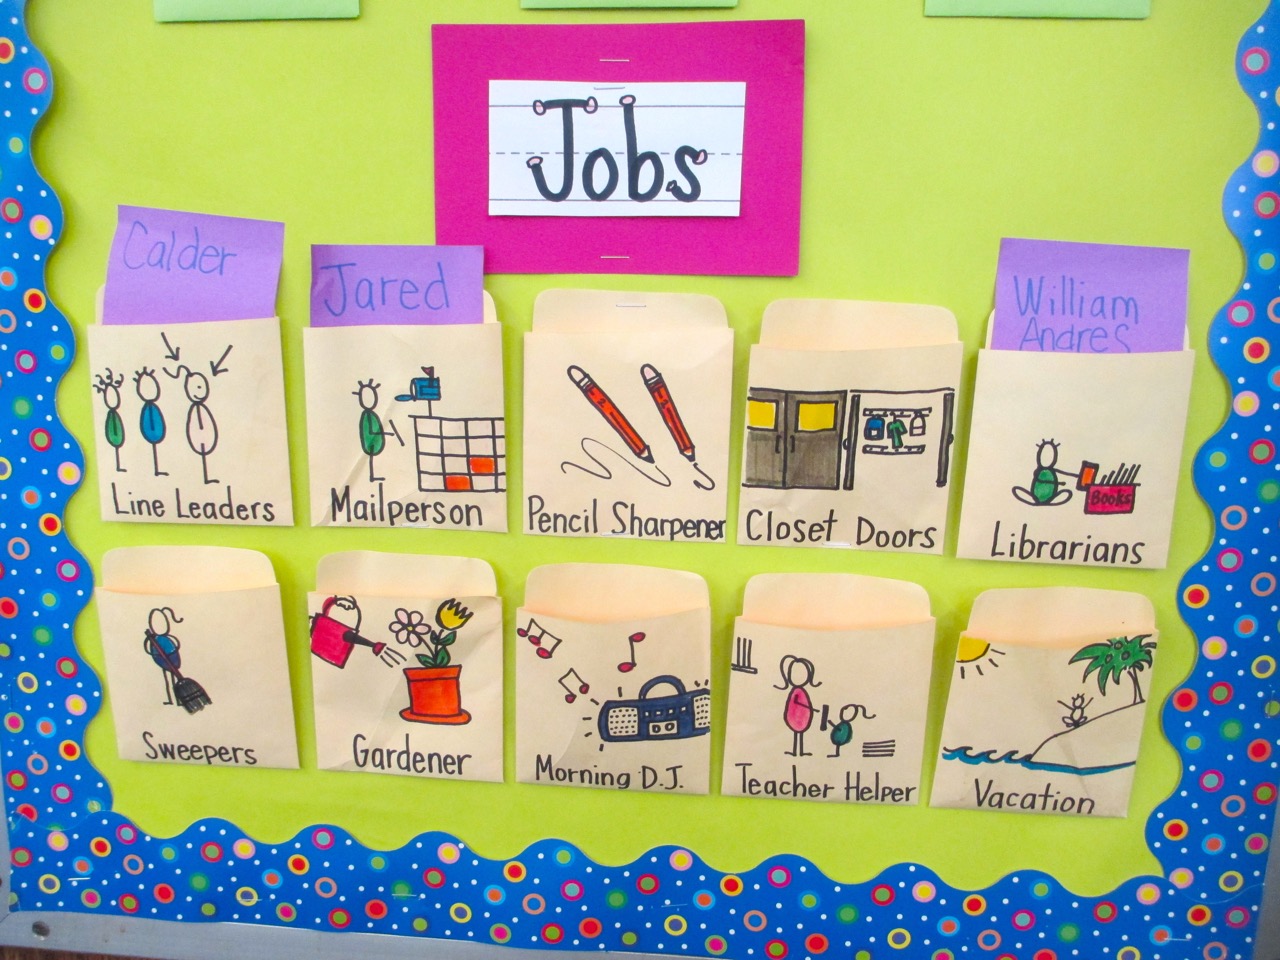 Jobs
Calder
Jared
William
Andres
Line Leaders
Mailperson
Pencil Sharpener
Closet Doors
Books
Librarians
Sweepers
Gardener
Morning D.J.
Teacher Helper
Vacation